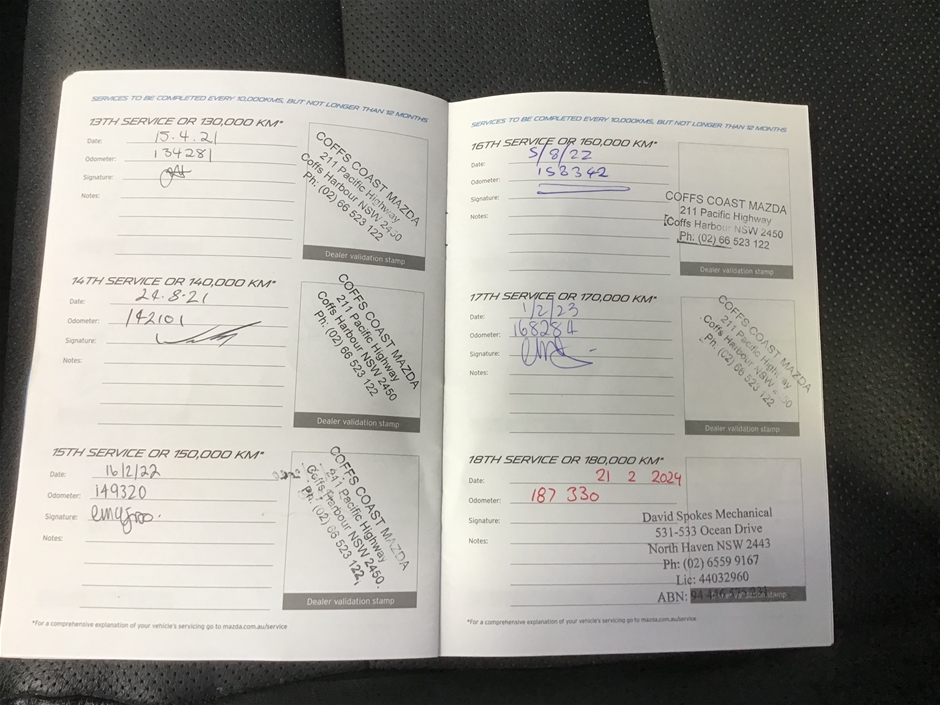 SERVICES TO BE COMPLETED EVERY 10,000KMS, BUT NOT LONGER THAN 12 MONTHS
13TH SERVICE OR 130,000 KM*
Date: 15.4.21
Odometer: 134281
Signature:
Notes:
COFFS COAST MAZDA
211 Pacific Highway
Coffs Harbour NSW 2450
Ph: (02) 66 523 122
Dealer validation stamp
14TH SERVICE OR 140,000 KM*
Date: 24.8.21
Odometer: 142101
Signature:
Notes:
COFFS COAST MAZDA
211 Pacific Highway
Coffs Harbour NSW 2450
Ph: (02) 66 523 122
Dealer validation stamp
15TH SERVICE OR 150,000 KM*
Date: 16/2/22
Odometer: 149320
Signature:
Notes:
COFFS COAST MAZDA
211 Pacific Highway
Coffs Harbour NSW 2450
Ph: (02) 66 523 122
Dealer validation stamp
*For a comprehensive explanation of your vehicle's servicing go to mazda.com.au/service
SERVICES TO BE COMPLETED EVERY 10,000KMS, BUT NOT LONGER THAN 12 MONTHS
16TH SERVICE OR 160,000 KM*
Date: 5/8/22
Odometer: 153342
Signature:
Notes:
COFFS COAST MAZDA
211 Pacific Highway
Coffs Harbour NSW 2450
Ph: (02) 66 523 122
Dealer validation stamp
17TH SERVICE OR 170,000 KM*
Date: 1/2/23
Odometer: 168284
Signature:
Notes:
COFFS COAST MAZDA
211 Pacific Highway
Coffs Harbour NSW 2450
Ph: (02) 66 523 122
Dealer validation stamp
18TH SERVICE OR 180,000 KM*
Date: 21 2 2024
Odometer: 187 330
Signature:
Notes:
David Spokes Mechanical
531-533 Ocean Drive
North Haven NSW 2443
Ph: (02) 6559 9167
Lic: 44032960
ABN:
*For a comprehensive explanation of your vehicle's servicing go to mazda.com.au/service